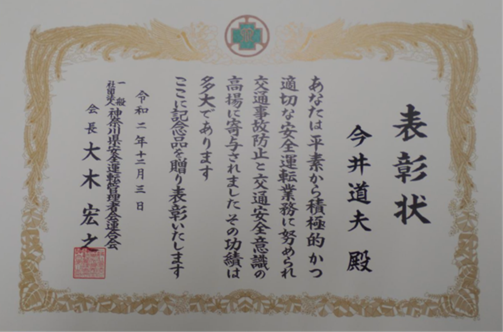 表彰状
今井道夫 殿
あなたは平素から積極的かつ
適切な安全運転業務に努められ
交通事故防止と交通安全意識の
高揚に寄与されましたその功績は
多大であります
ここに記念品を贈り表彰いたします
令和二年十二月三日
一般社団法人 神奈川県安全運転管理者会連合会
会長 大木宏之